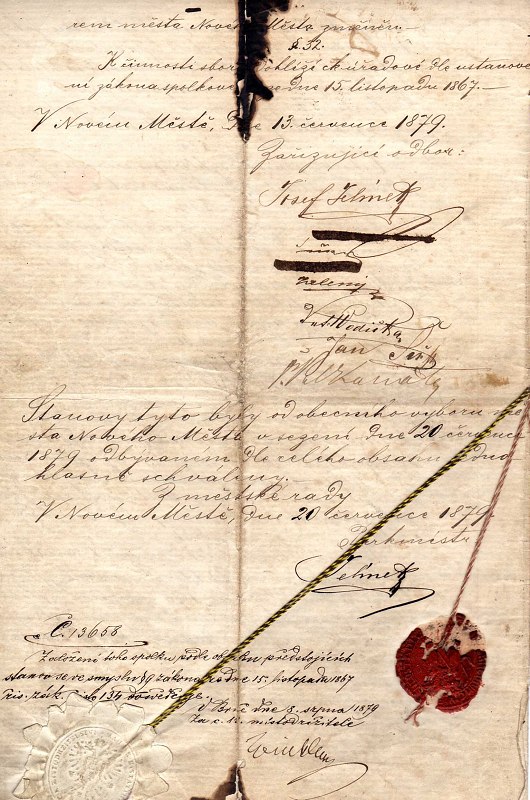 rem města Nového Města změněn.—
§. 32.
K činnosti sboru dohlíží c. k. úřadové dle ustanove
ní zákona spolkového dne 15. listopadu 1867.—
V Novém Městě, dne 13. července 1879.
Zařizující odbor:
Josef Jelínek
Zelený
Jan
Stanovy tyto byly od obecního výboru mě
sta Nového Města v sezení dne 20 července
1879 odbývaném dle celého obsahu jedno
hlasně schváleny.
Z městské rady
V Novém Městě, dne 20 července 1879.
Purkmistr
Jelínek
Č. 13658
Založení toho spolku podle obsahu předstojících
stanov se ve smyslu § 9 zákona ze dne 15. listopadu 1867
říš. zák. číslo 134 dosvědčuje.
V Brně dne 8. srpna 1879
Za c. k. místodržitele